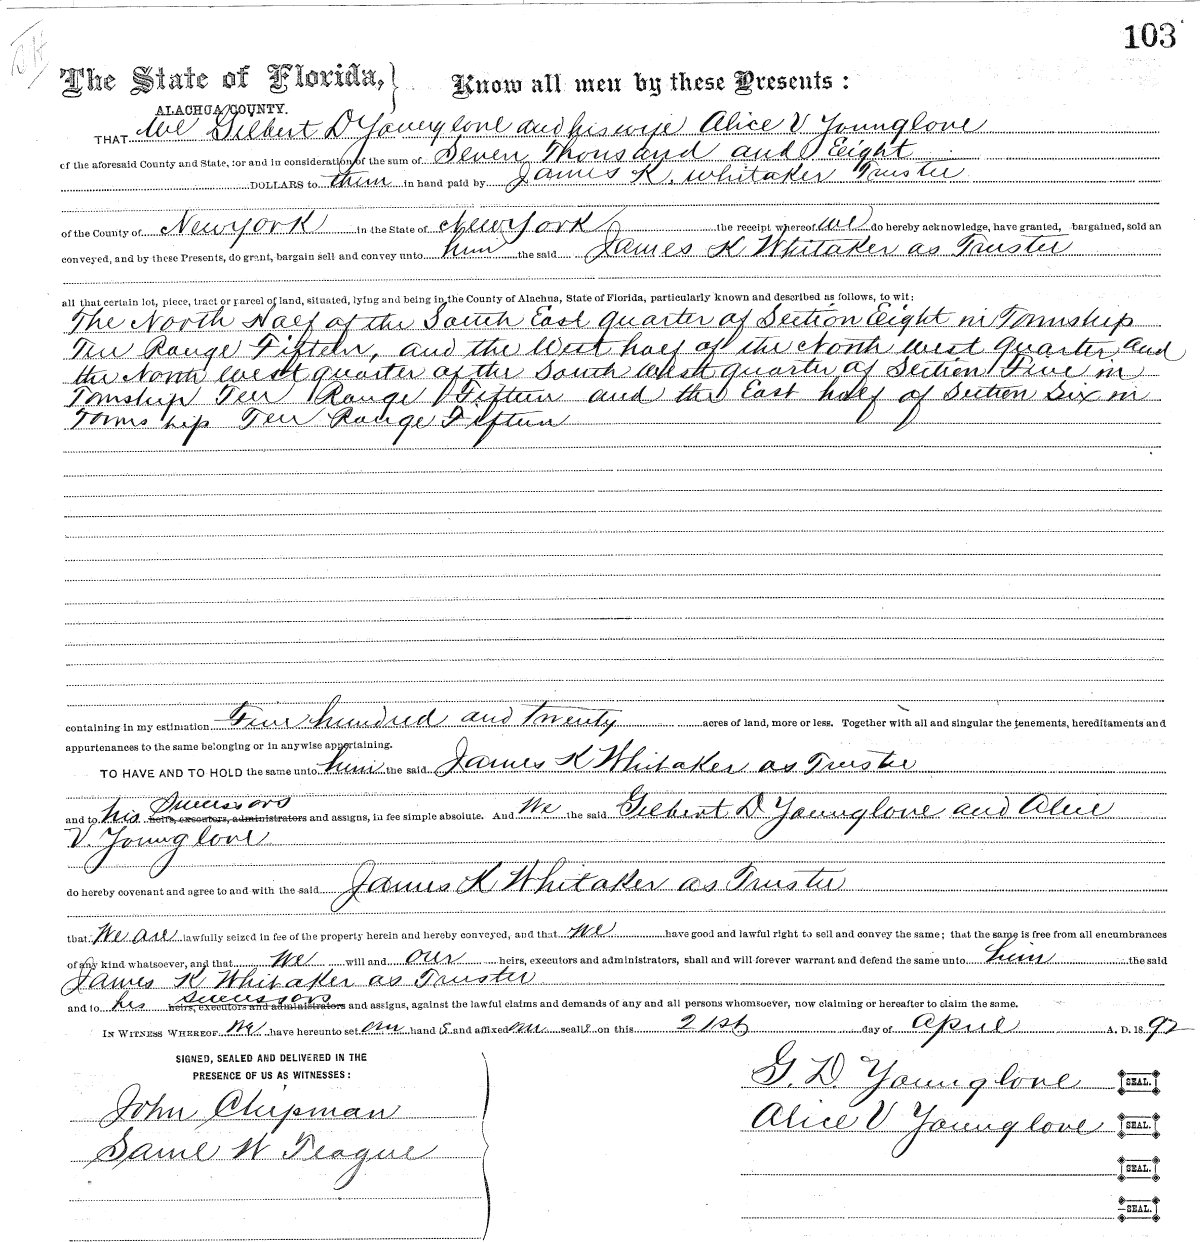 103
The State of Florida,} Know all men by these Presents:
ALACHUA COUNTY.
THAT We Gilbert D Younglove and his wife Alice V Younglove
of the aforesaid County and State, for and in consideration of the sum of Seven Thousand and Eight
DOLLARS to them in hand paid by James K. Whitaker Trustee
of the County of New York in the State of New York the receipt whereof we do hereby acknowledge, have granted, bargained, sold an
conveyed, and by these Presents, do grant, bargain sell and convey unto him the said James K Whitaker as Trustee
all that certain lot, piece, tract or parcel of land, situated, lying and being in the County of Alachua, State of Florida, particularly known and described as follows, to wit:
The North Half of the South East quarter of Section Eight in Township
Ten Range Fifteen, and the West half of the North west quarter and
the North West quarter of the South West quarter of Section Five in
Township Ten Range Fifteen and the East half of Section Six in
Township Ten Range Fifteen
containing in my estimation Five hundred and twenty acres of land, more or less. Together with all and singular the tenements, hereditaments and
appurtenances to the same belonging or in anywise appertaining.
TO HAVE AND TO HOLD the same unto him the said James K Whitaker as Trustee
and to his Successors heirs, executors, administrators and assigns, in fee simple absolute. And We the said Gilbert D Younglove and Alice
V. Younglove
do hereby covenant and agree to and with the said James K Whitaker as Trustee
that We are lawfully seized in fee of the property herein and hereby conveyed, and that we have good and lawful right to sell and convey the same; that the same is free from all encumbrances
of any kind whatsoever, and that We will and our heirs, executors and administrators, shall and will forever warrant and defend the same unto him the said
James K Whitaker as Trustee
and to his successors heirs, executors and administrators and assigns, against the lawful claims and demands of any and all persons whomsoever, now claiming or hereafter to claim the same.
IN WITNESS WHEREOF We have hereunto set our hand s and affixed our seal s on this 21st day of April A. D. 18 92
SIGNED, SEALED AND DELIVERED IN THE
PRESENCE OF US AS WITNESSES:
G. D. Younglove SEAL.
John Chipman
Alice V Younglove SEAL.
Saml W Teague
SEAL.
SEAL.